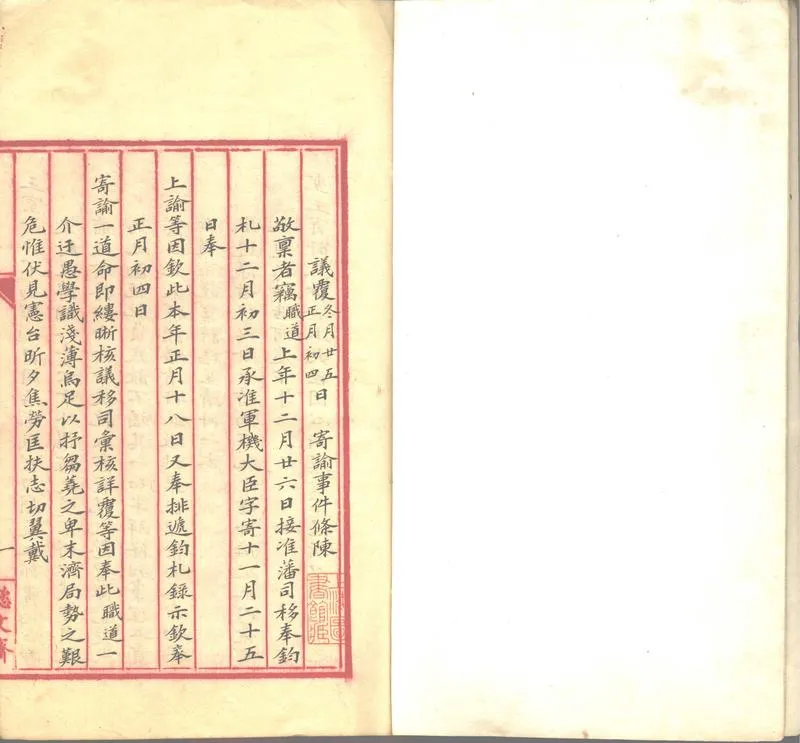 議覆冬月廿五正月初四日 寄諭事件條陳
敬稟者竊職道上年十二月廿六日接准藩司移奉鈞
札十二月初三日承准軍機大臣字寄十一月二十五
日奉
上諭等因欽此本年正月十八日又奉排遞鈞札錄示欽奉
正月初四日
寄諭一道命即縷晰核議移司彙核詳覆等因奉此職道一
介迂愚學識淺薄烏足以抒芻蕘之卑末濟局勢之艱
危惟伏見憲台昕夕焦勞匡扶志切翼戴
一
懿文齋